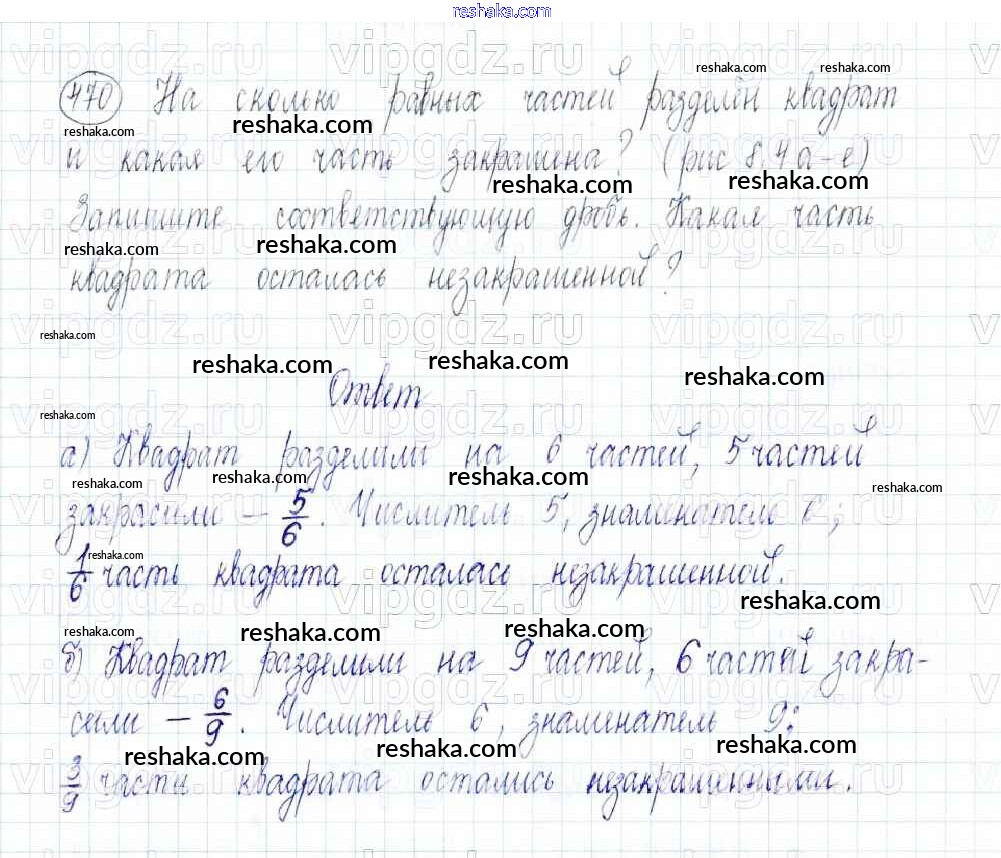 reshaka.com
470 На сколько равных частей разделён квадрат
и какая его часть закрашена? (рис 8.4 а-е)
Запишите соответствующую дробь. Какая часть
квадрата осталась незакрашенной?
Ответ
а) Квадрат разделили на 6 частей, 5 частей
закрасили – 5/6. Числитель 5, знаменатель 6;
1/6 часть квадрата осталась незакрашенной.
б) Квадрат разделили на 9 частей, 6 частей закра-
сили – 6/9. Числитель 6, знаменатель 9;
3/9 части квадрата остались незакрашенными.